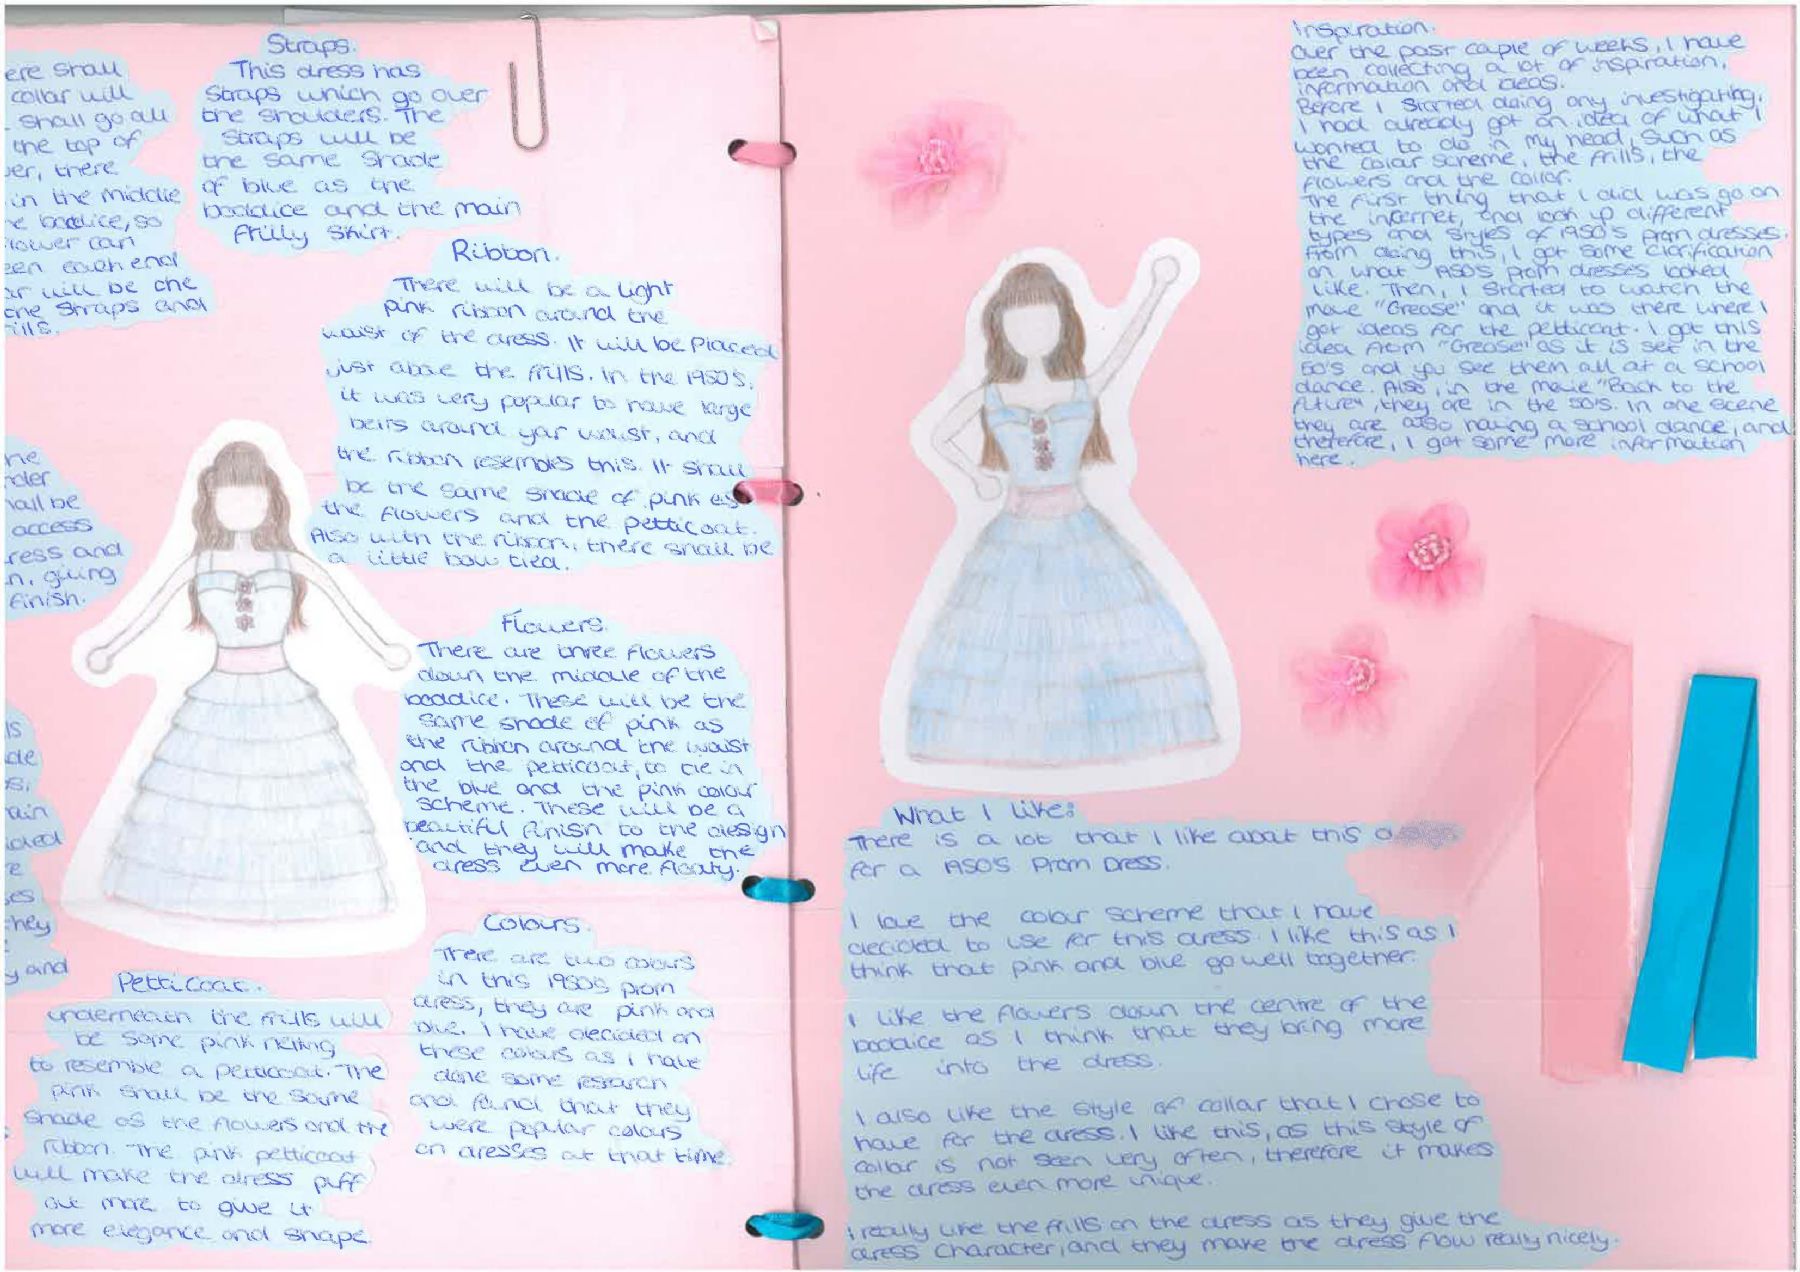 ere shall
collar will
shall go all
the top of
er, there
in the middle
e boddice, so
lower can
een each end
ar will be the
the straps and
ills.
Straps.
This dress has
straps which go over
the shoulders. The
straps will be
the same shade
of blue as the
boddice and the main
frilly skirt.
Ribbon.
There will be a light
pink ribbon around the
waist of the dress. It will be placed
just above the frills. In the 1950s,
it was very popular to have large
belts around your waist, and
the ribbon resembles this. It shall
be the same shade of pink as
the flowers and the petticoat.
Also with the ribbon, there shall be
a little bow tied.
he
nder
hall be
access
ress and
n, giving
finish.
Flowers.
There are three flowers
down the middle of the
boddice. These will be the
same shade of pink as
the ribbon around the waist
and the petticoat, to tie in
the blue and the pink colour
scheme. These will be a
beautiful finish to the design
and they will make the
dress even more floaty.
ls
de
s,
ain
ided
e
es.
they
y and
Petticoat.
underneath the frills will
be some pink netting
to resemble a petticoat. The
pink shall be the same
shade as the flowers and the
ribbon. The pink petticoat
will make the dress puff
out more to give it
more elegance and shape.
Colours.
There are two colours
in this 1950s prom
dress, they are pink and
blue. I have decided on
these colours as I have
done some research
and found that they
were popular colours
on dresses at that time.
Inspiration.
Over the past couple of weeks, I have
been collecting a lot of inspiration,
information and ideas.
Before I started doing any investigating,
I had already got an idea of what I
wanted to do in my head, such as
the colour scheme, the frills, the
flowers and the collar.
The first thing that I did was go on
the internet, and look up different
types and styles of 1950's prom dresses.
From doing this, I got some clarification
on what 1950s prom dresses looked
like. Then, I started to watch the
movie "Grease" and it was there where I
got ideas for the petticoat. I got this
idea from "Grease" as it is set in the
50's and you see them all at a school
dance. Also, in the movie "Back to the
future", they are in the 50's. In one scene
they are also having a school dance, and
therefore, I got some more information
here.
What I like:
There is a lot that I like about this design
for a 1950's Prom Dress.
I love the colour scheme that I have
decided to use for this dress. I like this as I
think that pink and blue go well together.
I like the flowers down the centre of the
boddice as I think that they bring more
life into the dress.
I also like the style of collar that I chose to
have for the dress. I like this, as this style of
collar is not seen very often, therefore it makes
the dress even more unique.
I really like the frills on the dress as they give the
dress character, and they make the dress flow really nicely.